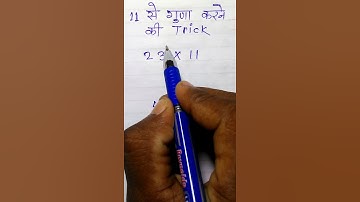 11 से गुणा करने
की Trick
23 x 11